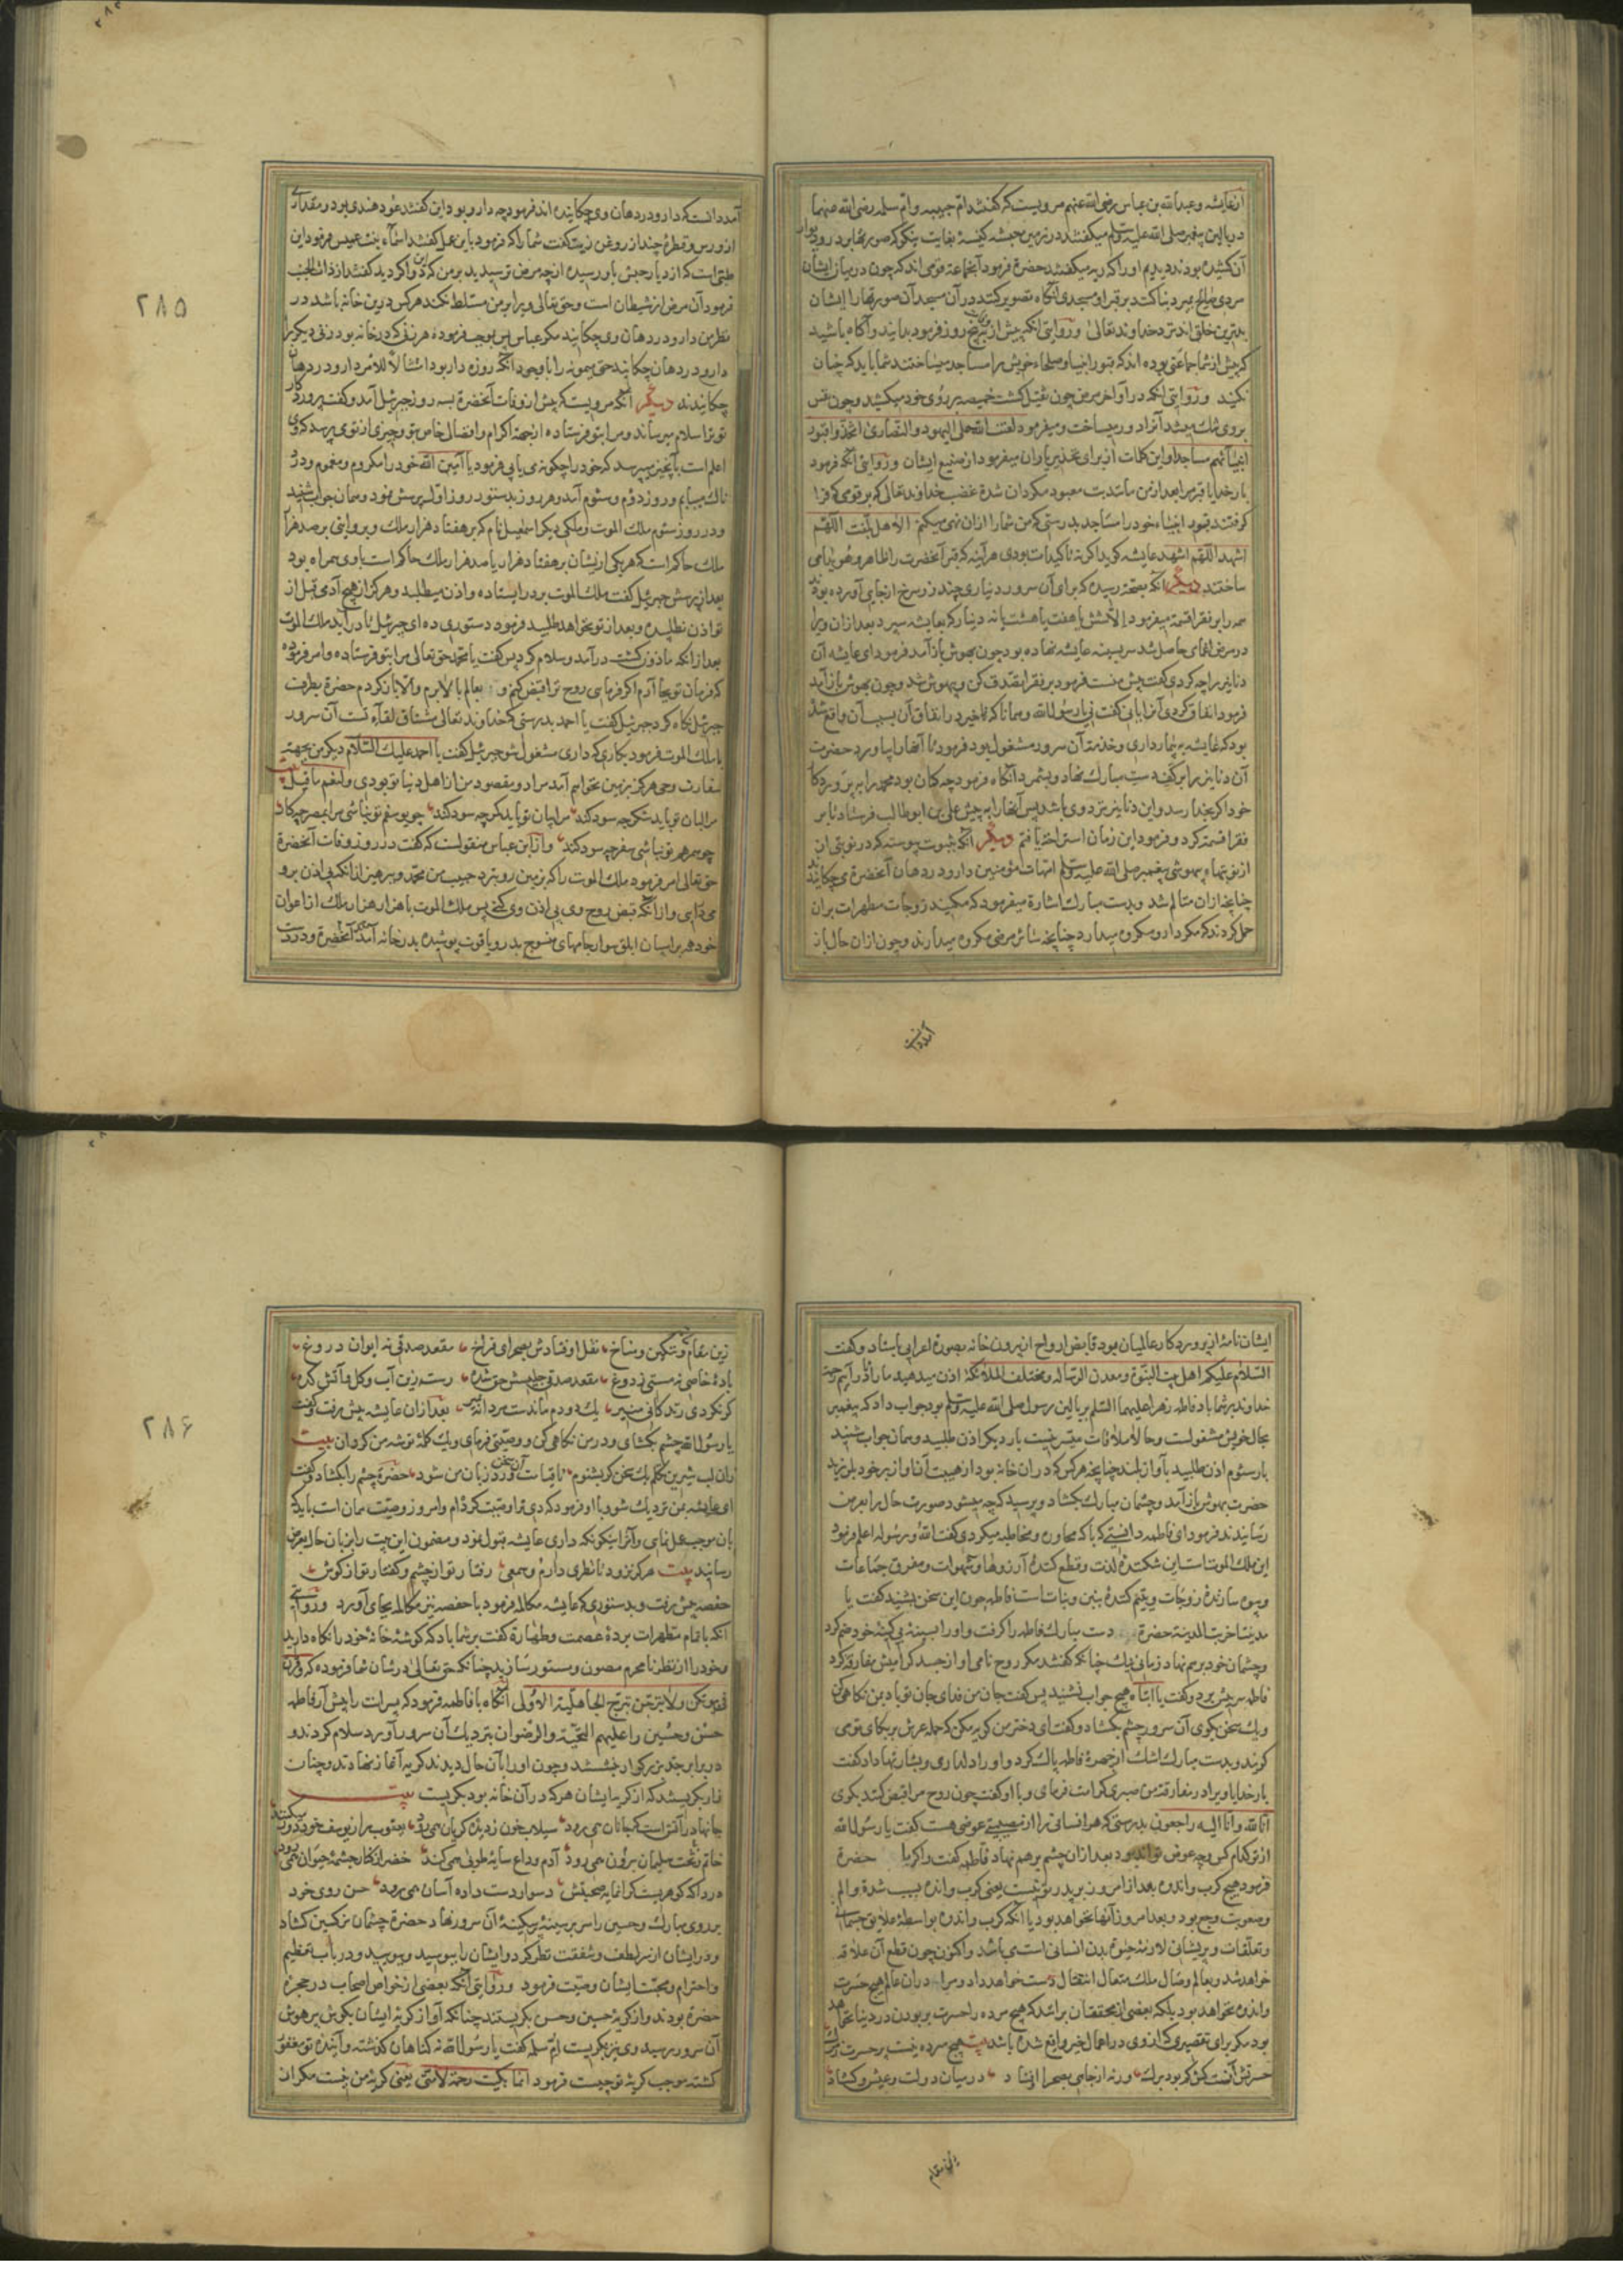 ازعایشه وعبدالله بن عباس رضی الله عنهم مرویست که گفتند ام حبیبه وام سلمه رضی الله عنهما
در بالین پیغمبر صلی الله علیه وسلم میگفتند در زمین حبشه کنیسهٔ بغایت نیکو که صورتها بر در ودیوار
آن کشیده بودند دیدیم اورا که ریه میگفتند حضرة فرمود آنجماعة قومی اند که چون در میان ایشان
مردی صالح بمیرد بنا کنند بر قبر او مسجدی آنگاه تصویر کنند در آن مسجد آن صورتها را ایشان
بدترین خلق اند نزد خداوند تعالی وروایتی آنکه پیش از پنج روز فرمود بدانید وآگاه باشید
که پیش از شما جماعتی بوده اند که قبور انبیا وصلحاء خویش را مساجد میساختند شما باید که چنان
نکنید وروایتی آنکه در اواخر مرض چون ثقیل گشت خمیصه بر روی خود میکشید وچون نفس
بروی تنک میشد آنرا دور میساخت ومیفرمود لعنت الله علی الیهود والنصاری اتخذوا قبور
انبیائهم مساجد واین کلمات از برای تحذیر یاران میفرمود از صنیع ایشان وروایتی آنکه فرمود
بار خدایا قبر مرا بعد از من مانند بت معبود مگردان شدة غضب خداوند تعالی که بر قومی که فرا
گرفتند قبور انبیاء خود را مساجد بدرستی که من شما را از ان نهی میکنم الا هل بلغت اللهم
اشهد اللهم اشهد عایشه گوید اگر نه تاکیدات بودی هر آینه که قبر آنحضرت را ظاهر وهویدا می
ساختند دیگر آنکه بصحة رسیده که برای آن سرور دیناری چند زر سرخ از جایی آورده بودند
همه را بر فقرا قسمة میفرمود الا شش یا هفت یا هشت یا نه دینار که بعایشه سپرد بعد از ان ویرا
در مرض اغمای حاصل شد سر بسینه عایشه نهاده بود چون بهوش باز آمد فرمود ای عایشه آن
دنانیر را چه کردی گفت پیش منست فرمود بر فقرا تصدق کن وبیهوش شد وچون بهوش باز آمد
فرمود انفاق کردی آنرا یا نی گفت نی یا رسول الله وهمانا که تاخیر در انفاق آن بسبب آن واقع شد
بود که عایشه به بیمارداری وخدمة آن سرور مشغول بود فرمود تا آنها را بیاورد حضرت
آن دنانیر را بر کف دست مبارک نهاد وبشمرد آنگاه فرمود چه گمان بود محمد را به پروردگار
خود اگر بخدا رسد واین دنانیر نزد وی باشد پس آنها را به پیش علی بن ابو طالب فرستاد تا بر
فقرا قسمة کرد وفرمود این زمان استراحة یافتم دیگر آنکه بثبوت پیوسته که در نوبتی از
از نوبتهاء بیهوشی پیغمبر صلی الله علیه وسلم امهات مؤمنین دارو در دهان آنحضرة می چکانیدند
چنانچه از ان متالم شد وبدست مبارک اشارة میفرمود که مکنید زوجات مطهرات بر ان
حمل کردند که مگر دارو مکروه میدارد چنانچه سائر مرضی مکروه میدارند وچون از ان حال باز
آمد دانست
آمد دانست که دارو در دهان وی چکانیده اند فرمود چه دارو بود این گفتند عود هندی بود ومقداری
از ورس وقطرهٔ چند از روغن زیت گفت شما را که فرمود باین عمل گفتند اسمآء بنت عمیس فرمود این
طبی است که از دیار حبش باو رسیده از چه مرض ترسیدید بر من که این دوا کردید گفتند از ذات الجنب
فرمود آن مرض از شیطان است وحق تعالی ویرا بر من مسلط نکند هر کس درین خانه باشد در
نظر من دارو در دهان وی چکانید مگر عباس پس بموجب فرموده هر نفر که در خانه بود در فم یکدیگر
دارو در دهان چکانیدند حتی میمونه را با وجود آنکه روزه دار بود امتثالاً للامر دارو در دهان
چکانیدند دیگر آنکه مرویست که پیش از وفات آنحضرة بسه روز جبرئیل آمد وگفت پروردگار
تو ترا سلام میرساند ومرا بتو فرستاده از جهة اکرام وافضال خاص بتو وچیزی از تو می پرسد که وی
اعلم است بآنچیز میپرسد که خود را چگونه می یابی فرمود یا امین الله خود را مکروم ومغموم ودرد
ناک مییابم وروز دوم وسوم آمد وهر روز بدستور روز اول پرسش نمود وهمان جواب شنید
ودر روز سوم ملک الموت وملکی دیگر اسمعیل نام که بر هفتاد هزار ملک وبروایتی بر صد هزار
ملک حاکم است که هر یکی از ایشان بر هفتاد هزار یا صد هزار ملک حاکم است با وی همراه بود
بعد از پرسش جبرئیل گفت ملک الموت بر در ایستاده واذن میطلبد وهرگز از هیچ آدمی قبل از
تو اذن نطلبیده وبعد از تو نخواهد طلبید فرمود دستوری ده ای جبرئیل تا در آید ملک الموت
بعد از آنکه ماذون گشت در آمد وسلام کرد پس گفت یا محمد حق تعالی مرا بتو فرستاده وامر فرموده
که فرمان تو بجا آرم اگر فرمایی روح ترا قبض کنم و بعالم بالا برم والا باز گردم حضرة بطرف
جبرئیل نگاه کرد جبرئیل گفت یا احمد بدرستی که خداوند تعالی مشتاق لقآء تست آن سرور
با ملک الموت فرمود بکاری که داری مشغول شو جبرئیل گفت یا احمد علیک السلام دیگر من بجهة
سفارت وحی هرگز بزمین نخواهم آمد مراد ومقصود من از اهل دنیا تو بودی ولنعم ما قیل بیت
مرا لبان تو باید شکر چه سود کند مرا میان تو باید کمر چه سود کند چو یوسفم تو نباشی مرا بمصر چه کار
چو همرهم تو نباشی سفر چه سود کند واز ابن عباس منقولست که گفت در روز وفات آنحضرة
حق تعالی امر فرمود ملک الموت را که بزمین رو بنزد حبیب من محمد وبپرهیز از انکه بی اذن برو
می در آیی واز آنکه قبض روح وی بی اذن وی کنی پس ملک الموت با هزار هزار ملک از اعوان
خود همه بر اسپان ابلق سوار جامهای منسوج بدر ویاقوت پوشیده بدر خانه آمد آنحضرة ودر دست
۲۸۵
ایشان نامهٔ از پروردگار عالمیان بود قابض ارواح از بیرون خانه بصورة اعرابی بایستاد وگفت
السلام علیکم اهل بیت النبوة ومعدن الرسالة ومختلف الملائکة اذن میدهید مرا تا در آیم رحمة
خداوند بر شما باد فاطمه زهرا علیهما السلم بر بالین رسول صلی الله علیه وسلم بود جواب داد که پیغمبر
بحال خویش مشغولست وحالا ملاقات میسر نیست بار دیگر اذن طلبید وهمان جواب شنید
بار سوم اذن طلبید بآواز بلند چنانچه هر کس که در ان خانه بود از هیبت آن آواز بر خود بلرزید
حضرت بهوش باز آمد وچشمان مبارک بکشاد وپرسید که چه میشود صورت حال را بعرض
رسانیدند فرمود ای فاطمه دانستی که با که محاوره ومخاطبه میکردی گفت الله ورسوله اعلم فرمود
این ملک الموت است این شکننده لذت وقطع کنندهٔ آرزوها وشهوات ومفرق جماعات
وبیوه سازندهٔ زوجات ویتیم کنندهٔ بنین وبنات است فاطمه چون این سخن بشنید گفت یا
مدینتا خربت المدینه حضرة دست مبارک فاطمه را گرفت واو را بسینهٔ بی کینهٔ خود ضم کرد
وچشمان خود بر هم نهاد زمانی نیک چنانکه گفتند مگر روح نامی او از جسد گرامیش مفارقة کرد
فاطمه سر پیش برد وگفت یا ابتاه هیچ جواب نشنید پس گفت جان من فدای جان تو باد بمن نگاهی کن
ویک سخن بگوی آن سرور چشم بکشاد وگفت ای دختر من گریه مکن که حمله عرش بر بکای تو می
گریند وبدست مبارک اشک از چهرهٔ فاطمه پاک کرد واو را دلداری وبشارتها داد گفت
بار خدایا ویرا در مفارقة من صبری کرامت فرمای وبا او گفت چون روح مرا قبض کنند بگوی
انا لله وانا الیه راجعون بدرستی که هر انسانی را از مصیبتی عوضی هست گفت یا رسول الله
از تو کدام کس وچه عوض تواند بود بعد از ان چشم بر هم نهاد فاطمه گفت وا کربا حضرة
فرمود هیچ کرب واندوه بعد از امروز بر پدر تو نیست یعنی کرب واندوه بسبب شدة والم
وصعوبت وجع بود وبعد امروز آنها نخواهد بود یا آنکه کرب واندوه بواسطهٔ علایق جسمانی
وتعلقات وپریشانی لازمهٔ حیوة بدن انسانی است می باشد واکنون چون قطع آن علاقه
خواهد شد وبعالم وصال ملک متعال انتقال دست خواهد داد ومرا در ان عالم هیچ حسرت
واندوه نخواهد بود بلکه بعضی از محققان بر انند که هیچ مرده را حسرت بر بودن در دنیا نخواهد
بود مگر برای تقصیری که از وی در اعمال خیر واقع شده باشد بیت هیچ مرده نیست پر حسرت زمرگ
حسرتش آنست کش کم بود برگ ورنه از چاهی بصحرا افتاد در میان دولت وعیش وگشاد
زین مقام
زین مقام وتنگین ومناخ نقل اوفتادش بصحرای فراخ مقعد صدقی نه ایوان دروغ
بادهٔ خاصی نه مستی ز دوغ مقعد صدقی جلیسش حق شده رسته زین آب وگل وآتش کده
گر نکردی زندگانی منیر یک دو دم ماندست مردانه بمیر بعد از ان عایشه پیش رفت وگفت
یا رسول الله چشم بکشای ودر من نگاهی کن ووصیتی فرمای ویک کلمهٔ توشه من گردان بیت
زان لب شیرین تکلم یک سخن گر بشنوم تا قیامت آن سخن ورد زبان من شود حضرة چشم را بکشاد وگفت
ای عایشه بمن نزدیک شو وبا او فرمود که دی ترا وصیت کرده ام وامروز وصیت همان است باید که
بان موجب عمل نمایی وآنرا نیکو نگه داری عایشه قبول نمود ومضمون این بیت را بزبان حال بعرض
رسانید بیت هرگز نرود تا نظری دارم وسمعی رفتار تو از چشم وگفتار تو از گوش
حفصه پیش رفت وبدستوری که عایشه مکالمه فرمود با حفصه نیز مکالمه بجای آورد وروایتی
آنکه با تمام مطهرات پردهٔ عصمت وطهارة گفت بر شما باد که گوشهٔ خانهٔ خود را نگاه دارید
وخود را از نظر نامحرم مصون ومستور سازید چنانکه حق تعالی در شان شما فرموده که وقرن
فی بیوتکن ولا تبرجن تبرج الجاهلیة الاولی آنگاه با فاطمه فرمود که پسرات را پیش آر فاطمه
حسن وحسین را علیهم التحیة والرضوان بنزدیک آن سرور آورد سلام کردند و
در برابر جد بزرگوار بنشستند وچون او را بآن حال دیدند گریه آغاز نهادند وچنان
زار بگریستند که از گریهٔ ایشان هر که در آن خانه بود بگریست بیت
جانها در آتش است که جانان همی رود سیلاب خون ز دیده گریان همی رود یعقوب را ز یوسف خود دور میکنند
خاتم ز دست سلیمان برون همی رود آدم وداع سایهٔ طوبی همی کند خضر از کنار چشمهٔ حیوان همی رود
دردا که گوهریست گرانمایه صحبتش دسوار دست داده آسان همی رود حسن روی خود
بر روی مبارک وحسین راس بر سینهٔ بی کینهٔ آن سرور نهاد حضرة چشمان نرگسین کشاد
ودر ایشان از سر لطف وشفقت نظر کرد وایشان را ببوسید وببویید ودر باب تعظیم
واحترام ومحبت ایشان وصیت فرمود وروایتی آنکه بعضی از خواص اصحاب در حجره
حضرة بودند واز گریهٔ حسین وحسن بگریستند چنانکه آواز گریهٔ ایشان بگوش پر هوش
آن سرور رسید وی نیز بگریست ام سلمه گفت یا رسول الله نه گناهان گذشته وآینده تو مغفور
گشته موجب گریهٔ تو چیست فرمود انما بکیت رحمة لامتی یعنی گریهٔ من نیست مگر از
۲۸۶